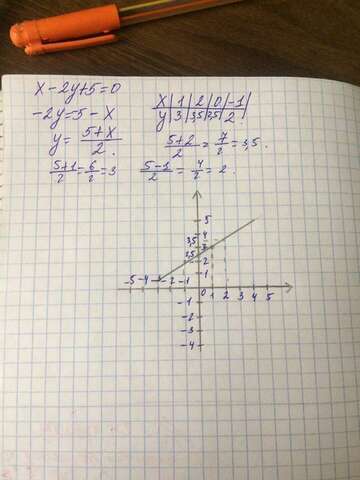 x - 2y + 5 = 0
-2y = 5 - x
y = 5+x/2
5+1/2 = 6/2 = 3
x | 1 | 2 | 0 | -1 |
y | 3 | 3,5 | 2,5 | 2 |
5+2/2 = 7/2 = 3,5.
5-1/2 = 4/2 = 2.
5
4
3,5
3
2,5
2
1
-5 -4 -2 -1 0 1 2 3 4 5
-1
-2
-3
-4